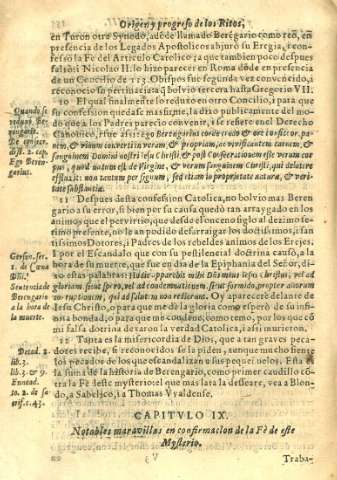 Origen y progreso de los Ritos,
en Turon otro Synodo, adōde llamado Berēgario como reo, en
presencia de los Legados Apostolicos abjurò su Eregia, i con-
fessò la Fe del Articulo Catolico; i aunque tambien poco despues
faltò: i Nicolao II. lo hizo parecer en Roma dōde en presencia de
un Concilio de 113. Obispos fue segunda vez convencido, i
reconocio su pertinacia que bolvio tercera hasta Gregorio VII.
10 El qual finalmente lo reduxo en otro Concilio, i para que
su confession quedasse mas firme, la dio publica
do que a los Padres parecio convenir, i se refiere en el Derecho
Canonico, i fue assi: ego Berengarius corde credo & ore confiteor pa-
nem, & vinum converti in veram & propriam, ac vivificatricem carnem, &
sanguinem Domini nostri Iesu Christi & post Consecrationem esse verum cor
pus, quod natum est de Virgine, & verum sanguinem Christi, qui de latere
effluxit: non tantum per signum, sed etiam in proprietate naturæ, & veri-
tate substantiæ.
Quando se
garius.
De consecr.
dist. 2. cap.
Ego Beren-
garius.
11 Despues desta confession Catolica, no bolvio mas Beren
gario a su error, si bien por su causa quedò tan arraygado en los
animos que el pervirtio, que desde el onceno siglo al dezimo se-
timo presente, no le an podido desarraigar los doctissimos, i san
tissimos Dotores, i Padres de los rebeldes animos de los Erejes.
I por el Escandalo que con su pestilencial dotrina causò, a la
hora de su muerte, que fue en dia de la Epiphania del Señor, di-
xo estas palabras: Hodie apparebit mihi Dñs meus Iesus Christus, vel ad
gloriam sicut spero, vel ad condemnationem, sicut formido, propter aliorum
corruptionem, qui ad salutem non redierunt. Oy aparecerà delante de
Jesu Christo, o para que me dè la gloria como espero de su infi-
nita bondad, o para que me condene, como temo, por los que cō
mi falsa dotrina dexaron la verdad Catolica, i assi murieron.
Gerson. ser.
1. de Cœna
Dñi.
Sentencia de
Berengario
a la hora de
la muerte.
12 Tanta es la misericordia de Dios, que a tan graves peca-
dores recibe, si reconocidos se la piden, aunque mucho siente
los pecados de los que escandalizan a sus pequeñuelos. Esta es
la suma de la historia de Berengario, como primer caudillo cō-
tra la Fè deste mysterio: el que mas lata la desseare, vea a Blon-
do, a Sabelico, i a Thomas Vvaldense.
Decad. 2.
lib. 3.
lib. 3. & 9.
Ennead.
to. 2. de sa-
cris. c. 43.
CAPITVLO IX.
Notables maravillas en confirmacion de la Fè de este
Mysterio.
Traba-